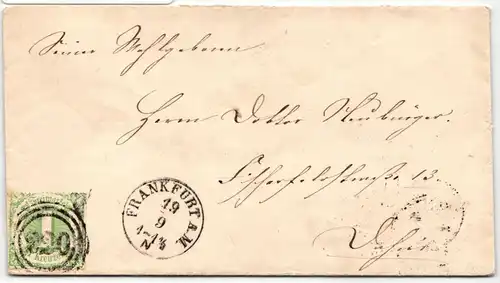 Seiner Wohlgeboren
Herrn Doktor Neubürger.
Fischerfeldstraße 13.
Dahier
FRANKFURT A.M.
19
9
1-1½
N
1
Kreuzer